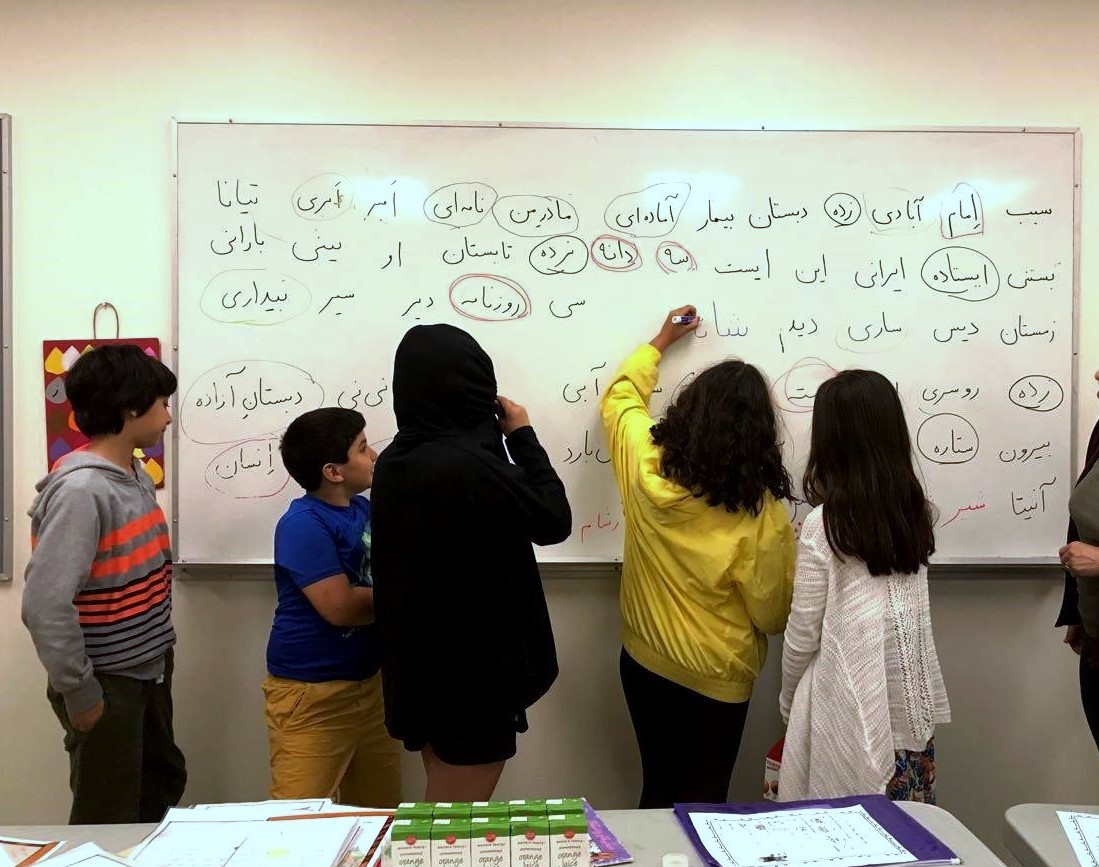 سبب اِمام آبادی زده دبستان بیمار آماده‌ای مادرِ من نامه‌ای اَبر اَبری تیانا
بَستنی ایستاده ایرانی این ایست سه دانه نرده تابستان او بینی بارانی
زمستان دیس ساری دیدم شانه سی روزنامه دیر سیر بیداری
رده روسری آبی نی‌نی دبستانِ آزاده
بیرون ستاره بارد اِنسان
آنیتا شیر
orange juice
orange juice
orange juice
orange juice
orange juice